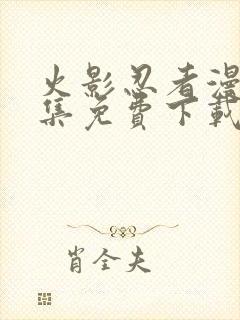 火影忍者漫
集免費下載
肖全夫